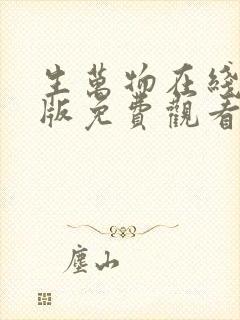 生萬物在綫
版免費觀看
塵山